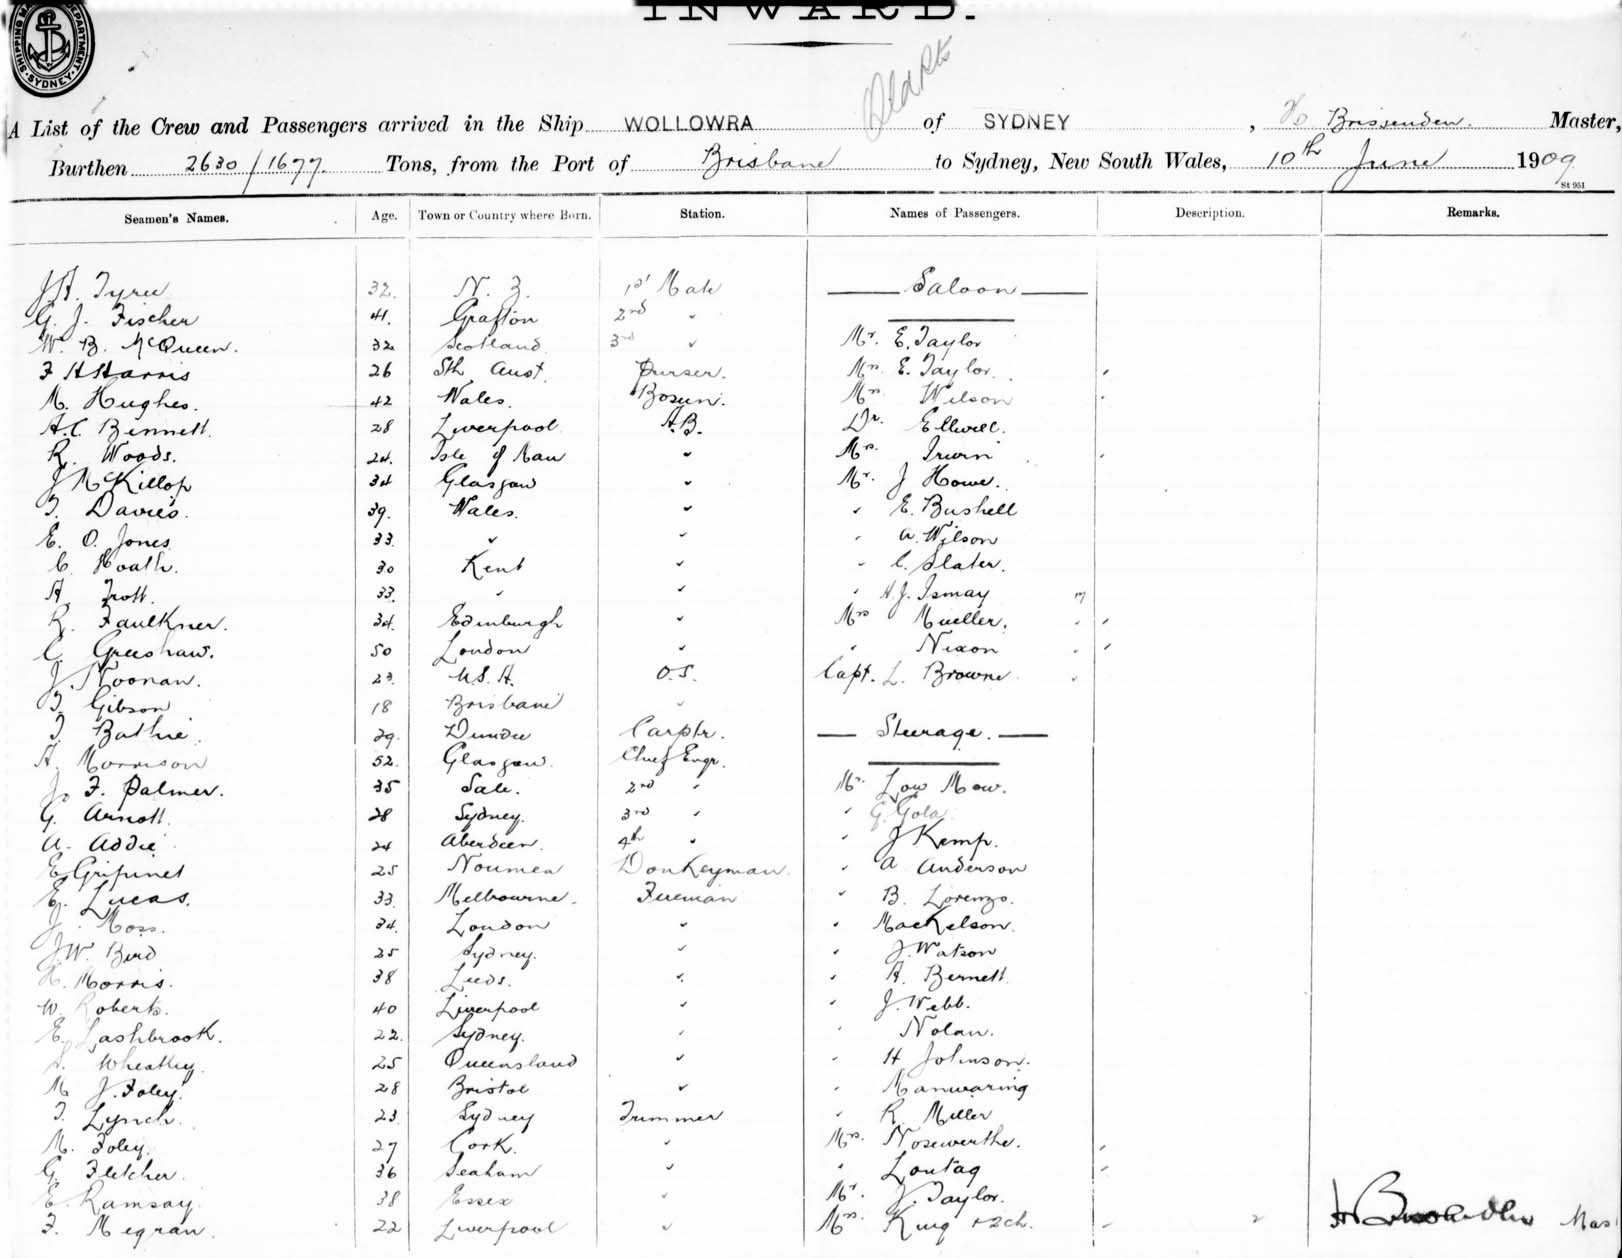 INWARD.
SYDNEY
A List of the Crew and Passengers arrived in the Ship WOLLOWRA of SYDNEY, Brissenden. Master,
Burthen 2630/1677. Tons, from the Port of Brisbane to Sydney, New South Wales, 10th June 1909
St 951
Seamen's Names. Age. Town or Country where Born. Station. Names of Passengers. Description. Remarks.
J A. Tyree 32. N. Z. 1st Mate Saloon
G. J. Fischer 41. Grafton 2nd "
W. B. McQueen. 32 Scotland 3rd " Mr. E. Taylor
F H Harris 26 Sth Aust. Purser. Mrs. E. Taylor.
M. Hughes. 42 Wales. Bosun. Mrs. Wilson
A.C. Bennett. 28 Liverpool. A.B. Dr.
R. Woods. 24. Isle of Man " Mrs. Irwin
J McKillop 34 Glasgow " Mr. J Howe.
T. Davies. 39. Wales. " " E. Bushell
E. O. Jones 33. " " " A. Wilson
C. Hoath. 30 Kent " " C. Slater.
A. Trott. 33. " " " A. J. Ismay
R. Faulkner. 34. Edinburgh " Mrs Mueller.
C. Greeshaw. 50 London " " Nixon
J. Noonan. 23. U.S.A. O.S. Capt. L. Browne
T. Gibson 18 Brisbane "
T. Bathie. 29. Dundee Carptr. Steerage.
A. Morrison 52. Glasgow. Chief Engr.
J. F. Palmer. 35 Sale. 2nd " Mr. Low Mow.
G. Arnott. 28 Sydney. 3rd " " G. Gola
A. Addie 24 Aberdeen. 4th " " J Kemp.
E 25 Noumea Donkeyman. " A Anderson
E. Lucas. 33. Melbourne. Fireman " B. Lorenzo.
J. Moss. 34. London " " MacKelson.
J.W. Bird 25 Sydney. " " J. Watson
H. Morris. 38 Leeds. " " A. Bennett
W. Roberts. 40 Liverpool " " J. Webb.
E. Lashbrook. 22. Sydney. " " Nolan.
Wheatley. 25 Queensland " " H Johnson.
M J. Foley. 28 Bristol " " Manwaring
T. Lynch. 23 Sydney Trimmer " R. Miller
M. Foley. 27 Cork. " Mrs. Noseworthe.
G. Fletcher. 36 Seaham " " Loutag
E. Ramsay. 38 Essex " Mr. J. Taylor.
F. Megran. 22 Liverpool " Mrs. King + 2 ch. 2 Mas